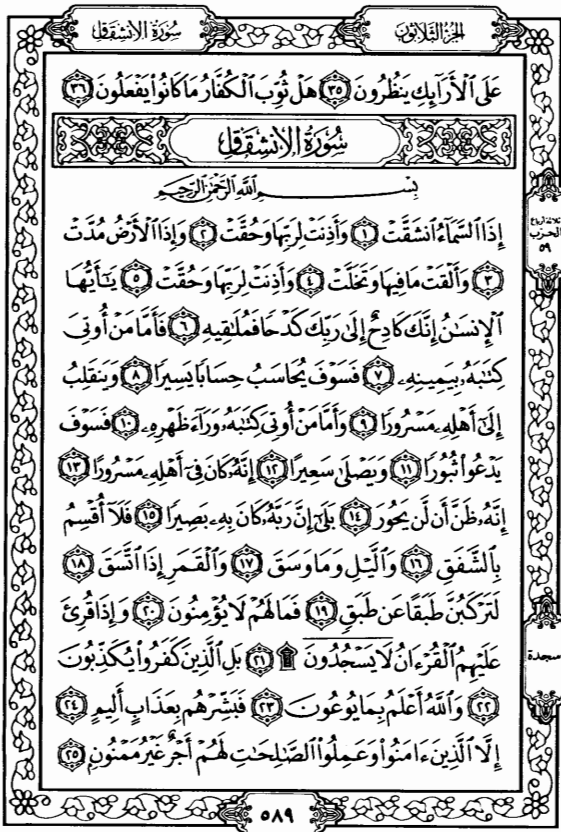 سُورَةُ الِانشِقَاقِ
الجُزْءُ الثَّلَاثُونَ
عَلَى ٱلْأَرَآئِكِ يَنظُرُونَ ٣٥ هَلْ ثُوِّبَ ٱلْكُفَّارُ مَا كَانُوا۟ يَفْعَلُونَ ٣٦
سُورَةُ الِانشِقَاقِ
بِسْمِ ٱللَّهِ ٱلرَّحْمَٰنِ ٱلرَّحِيمِ
إِذَا ٱلسَّمَآءُ ٱنشَقَّتْ ١ وَأَذِنَتْ لِرَبِّهَا وَحُقَّتْ ٢ وَإِذَا ٱلْأَرْضُ مُدَّتْ
٣ وَأَلْقَتْ مَا فِيهَا وَتَخَلَّتْ ٤ وَأَذِنَتْ لِرَبِّهَا وَحُقَّتْ ٥ يَٰٓأَيُّهَا
ٱلْإِنسَٰنُ إِنَّكَ كَادِحٌ إِلَىٰ رَبِّكَ كَدْحًا فَمُلَٰقِيهِ ٦ فَأَمَّا مَنْ أُوتِىَ
كِتَٰبَهُۥ بِيَمِينِهِۦ ٧ فَسَوْفَ يُحَاسَبُ حِسَابًا يَسِيرًا ٨ وَيَنقَلِبُ
إِلَىٰٓ أَهْلِهِۦ مَسْرُورًا ٩ وَأَمَّا مَنْ أُوتِىَ كِتَٰبَهُۥ وَرَآءَ ظَهْرِهِۦ ١٠ فَسَوْفَ
يَدْعُوا۟ ثُبُورًا ١١ وَيَصْلَىٰ سَعِيرًا ١٢ إِنَّهُۥ كَانَ فِىٓ أَهْلِهِۦ مَسْرُورًا ١٣
إِنَّهُۥ ظَنَّ أَن لَّن يَحُورَ ١٤ بَلَىٰٓ إِنَّ رَبَّهُۥ كَانَ بِهِۦ بَصِيرًا ١٥ فَلَآ أُقْسِمُ
بِٱلشَّفَقِ ١٦ وَٱلَّيْلِ وَمَا وَسَقَ ١٧ وَٱلْقَمَرِ إِذَا ٱتَّسَقَ ١٨
لَتَرْكَبُنَّ طَبَقًا عَن طَبَقٍ ١٩ فَمَا لَهُمْ لَا يُؤْمِنُونَ ٢٠ وَإِذَا قُرِئَ
عَلَيْهِمُ ٱلْقُرْءَانُ لَا يَسْجُدُونَ ۩ ٢١ بَلِ ٱلَّذِينَ كَفَرُوا۟ يُكَذِّبُونَ
٢٢ وَٱللَّهُ أَعْلَمُ بِمَا يُوعُونَ ٢٣ فَبَشِّرْهُم بِعَذَابٍ أَلِيمٍ ٢٤
إِلَّا ٱلَّذِينَ ءَامَنُوا۟ وَعَمِلُوا۟ ٱلصَّٰلِحَٰتِ لَهُمْ أَجْرٌ غَيْرُ مَمْنُونٍۭ ٢٥
ثلاثة أرباع
الحزب
٥٩
سجدة
٥٨٩